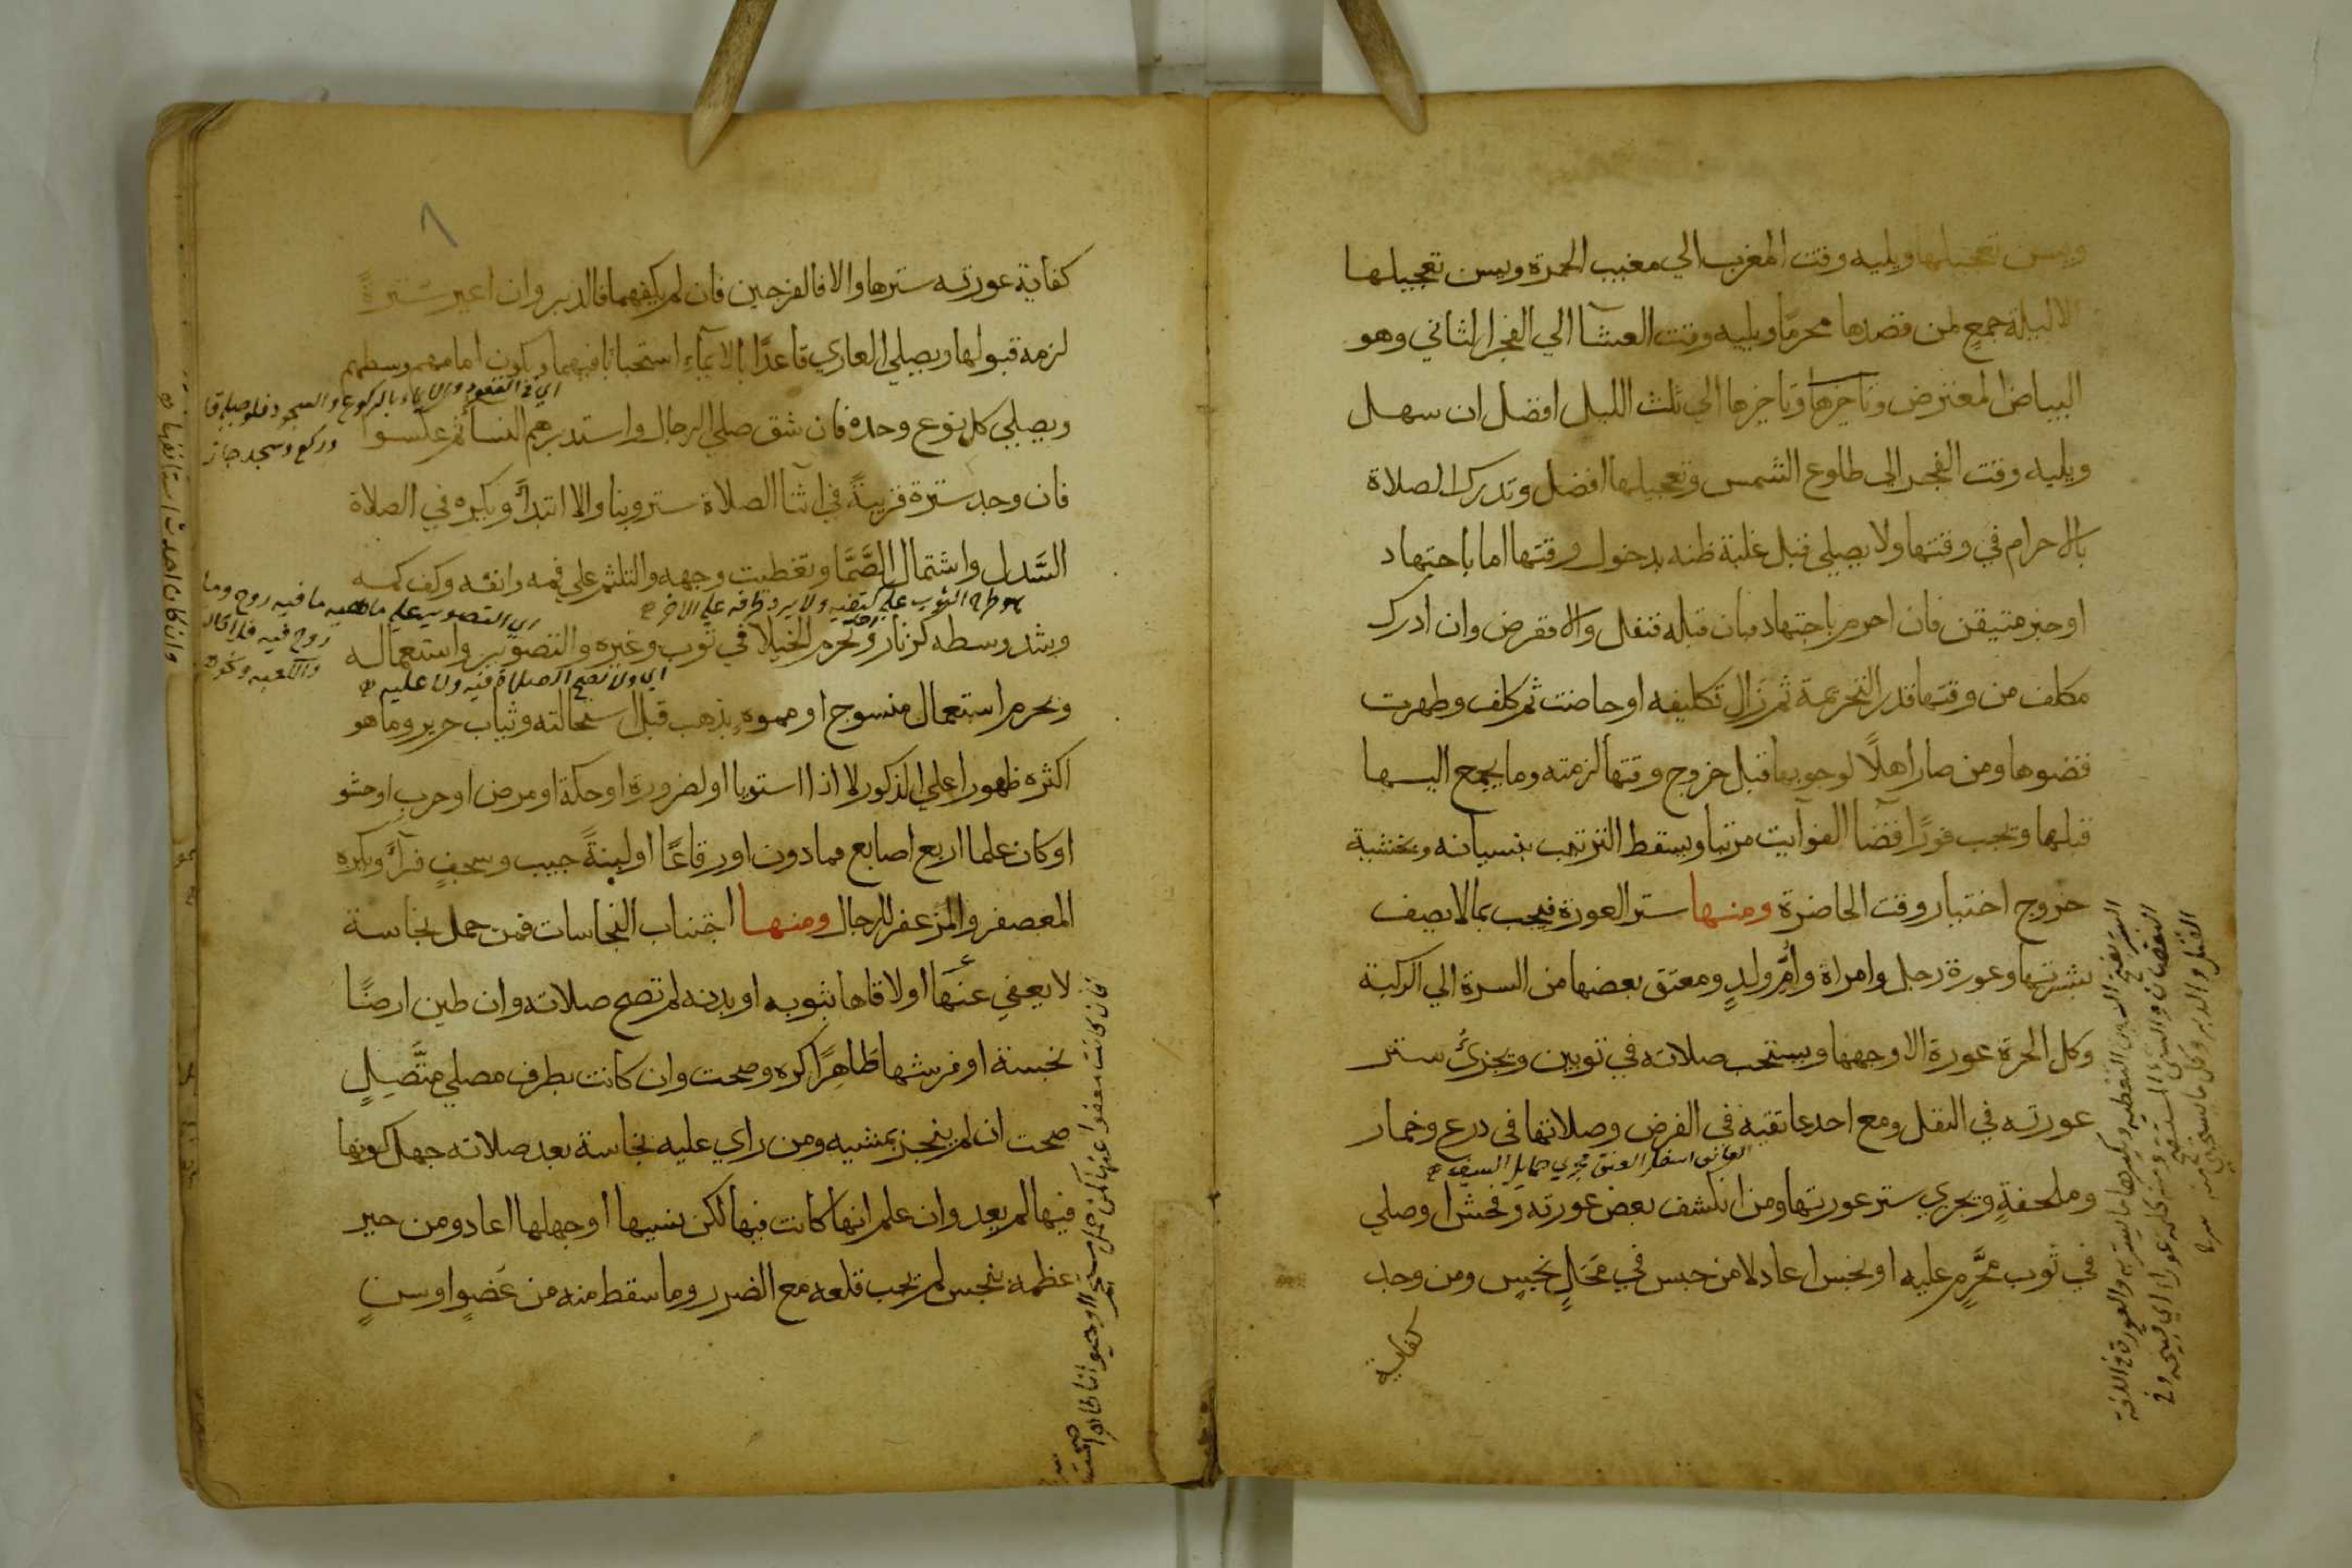 ويسن تعجيلها ويليه وقت المغرب الي مغيب الحمرة ويسن تعجيلها
الا ليلة جمع لمن قصدها محرمًا ويليه وقت العشآ الي الفجر الثاني وهو
البياض المعترض وتاخيرها الي ثلث الليل افضل ان سهل
ويليه وقت الفجر الي طلوع الشمس وتعجيلها افضل وتدرك الصلاة
بالاحرام في وقتها ولا يصلي قبل غلبة ظنه بدخول وقتها اما باجتهاد
او خبر متيقن فان احرم باجتهاد فبان قبله فنفل والا ففرض وان ادرك
مكلف من وقتها قدر التحريمة ثم زال تكليفه او حاضت ثم كلف وطهرت
قضوها ومن صار اهلًا لوجوبها قبل خروج وقتها لزمته وما يجمع اليها
قبلها وتجب فورًا قضآ الفوآيت مرتبا ويسقط الترتيب بنسيانه وبخشية
خروج اختيار وقت الحاضرة ومنها ستر العورة فيجب بما لا يصف
بشرتها وعورة رجل وامراة وأم ولدٍ ومعتق بعضها من السرة الي الركبة
وكل الحرة عورة الا وجهها ويستحب صلاته في ثوبين ويجزئ ستر
عورته في النفل ومع احد عاتقيه في الفرض وصلاتها في درع وخمار
العاتق اسفل العنق مجري حمايل السيف
وملحفةٍ ويجزي ستر عورتها ومن انكشف بعض عورته وفحش او صلي
في ثوب محَّرمٍ عليه او نجس اعاد لا من حبس في محَلٍ نجسٍ ومن وجد
كفاية
كفاية عورته سترها والا فالفرجين فان لم يكفهما فالدبر وان اعير سُترةً
لزمه قبولها ويصلي العاري قاعدًا بالايمآء استحبابا فيهما ويكون امامهم وسطهم
اي في القعود والايماء بالركوع والسجود فلو صلي قا
وركع وسجد جاز
ويصلي كل نوع وحده فان شق صلي الرجال واستدبرهم النسا ثم عكسوا
فان وجد سترة قريبةً في اثنآ الصلاة ستر وبنا والا ابتدأ ويكره في الصلاة
السَّدل واشتمال الصَّمَّا وتغطيت وجهه والتلثم علي فمه وانفه وكف كمه
هو طرح الثوب علي كتفيه ولا يرد طرفه علي الاخر
وشد وسطه كزنار وتحرم الخيلا في ثوب وغيره والتصوير واستعماله
ويحرم استعمال منسوج او مموهٍ بذهب قبل استحالته وثياب حرير وما هو
اكثره ظهورا علي الذكور لا اذا استويا او لضرورة او حكة او مرض او حرب او حشو
او كان علما اربع اصابع فما دون او رقاعًا او لبنةً جيب وسجفٍ فرآءٍ ويكره
المعصفر والمزعفر للرجال ومنها اجتناب النجاسات فمن حمل نجاسة
لا يعفي عنها او لاقاها بثوبه او بدنه لم تصح صلاته وان طين ارضًا
نجسة او فرشها طَاهِرًا كره وصحت وان كانت بطرف مصلي متَّصِلٍ
صحت ان لم ينجر بمشيه ومن راي عليه نجاسة بعد صلاته جهل كونها
فيها لم يعد وان علم انها كانت فيها لكن نسيها او جهلها اعاد ومن جبر
عظمه بنجس لم يجب قلعه مع الضرر وما سقط منه من عَضوٍ او سنٍ